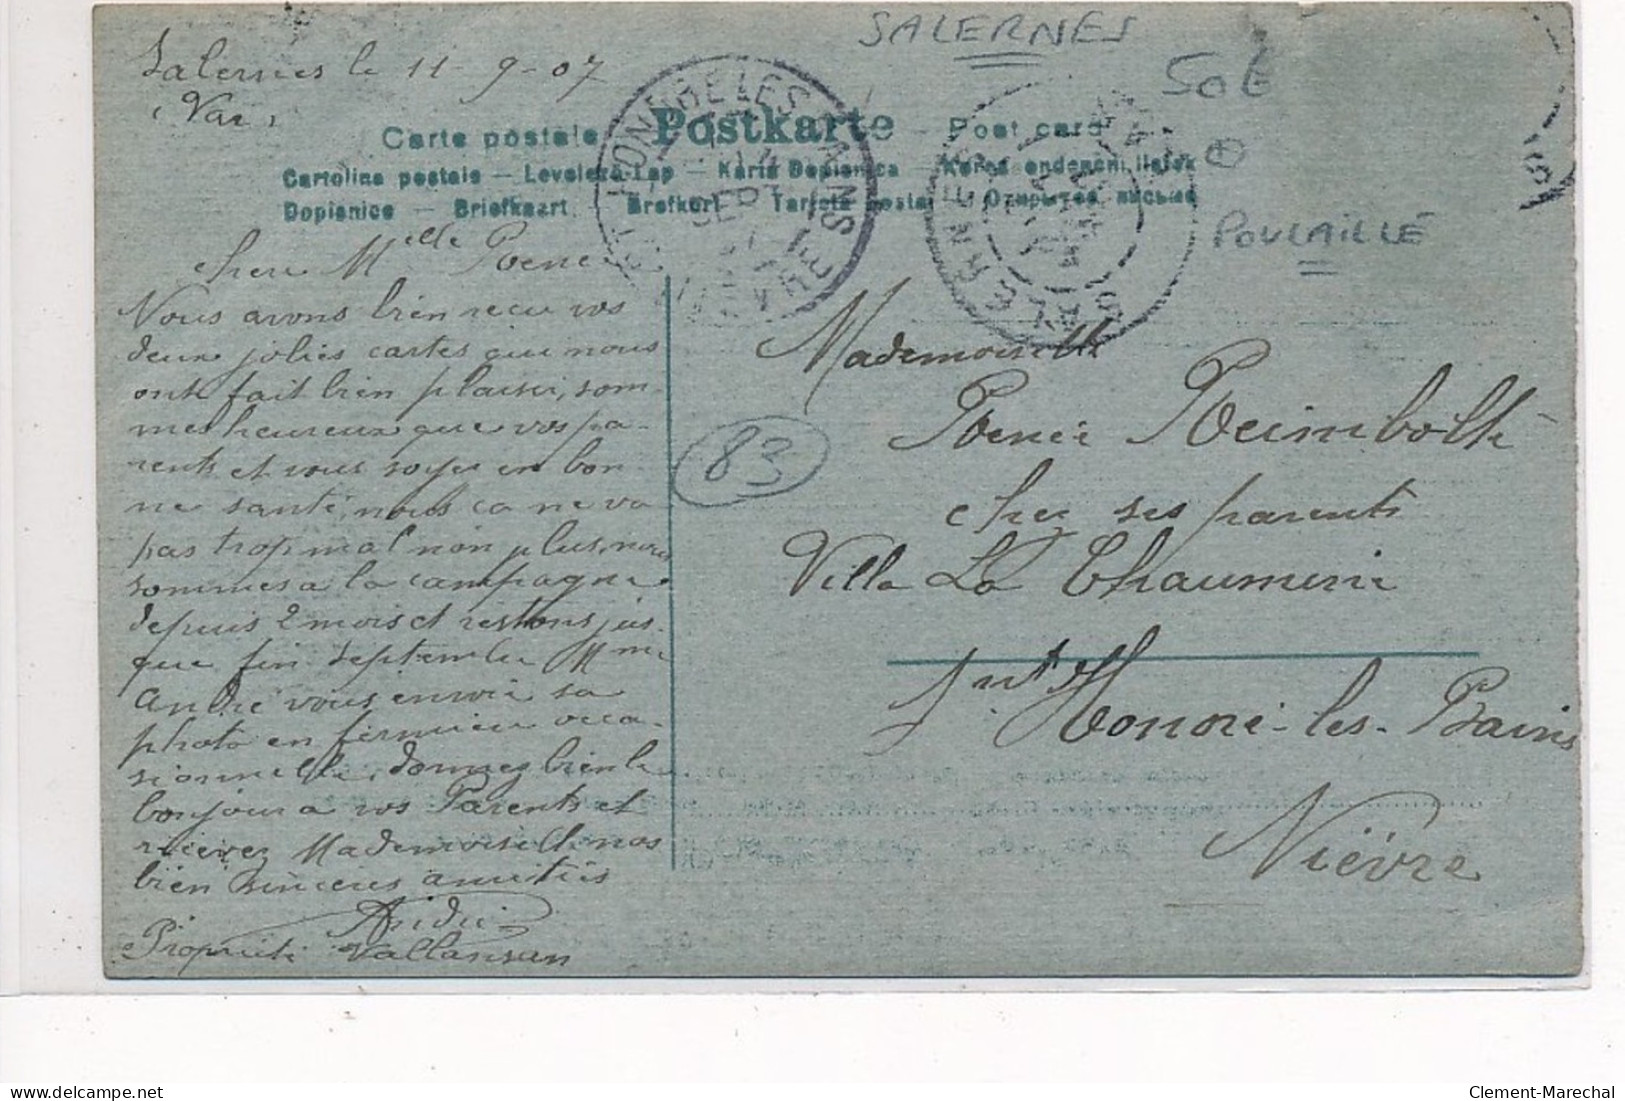 SALERNES
50 €
Salernes le 11-9-07
(Var)
Carte postale Postkarte Post card
Cartolina postale — Levelező-Lap — Karta Dopisnica —
Dopisnice — Briefkaart Brefkort Tarjeta postal
POULAILLE
chere Mlle Renee
Nous avons bien recu vos
deux jolies cartes qui nous
ont fait bien plaisir, som-
mes heureux que vos pa-
rents et vous soyer en bon-
ne santé, nous ca ne va
pas trop mal non plus, nous
sommes a la campagne
depuis 2 mois et restons jus-
que fin septembre Mme
André vous envoie sa
photo en fermiere occa-
sionnelle, donnez bien le
bonjour a vos Parents et
recevez Mademoiselle nos
bien sinceres amitiés
Propriété Vallansan
83
Mademoiselle
Renée Reimbolté
chez ses parents
Villa La Chaumiere
Snt Honoré-les-Bains
Nièvre
ST HONORE LES BAINS
NIEVRE
SALERNES
VAR
Clement-Marechal
delcampe.net